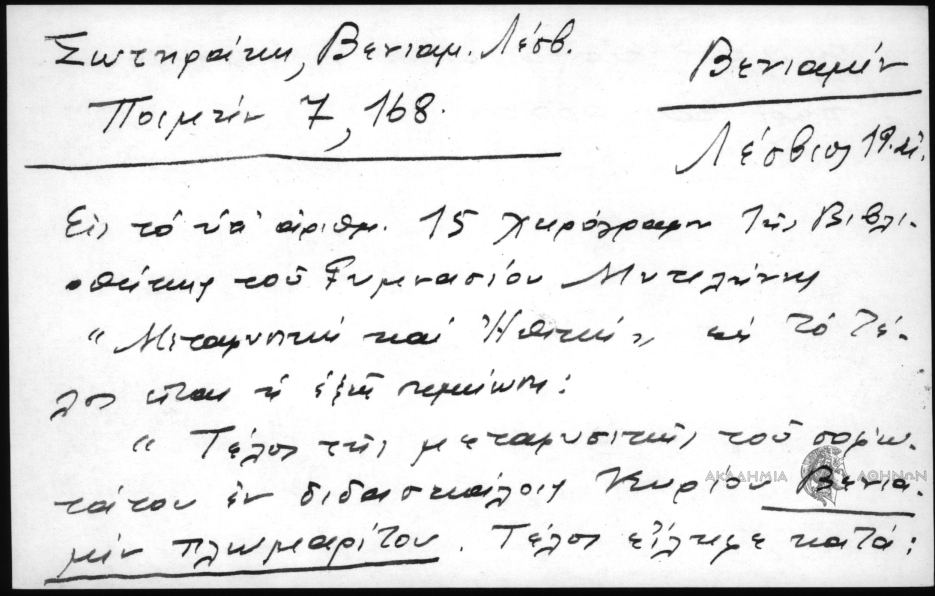 Σωτηράκη, Βενιαμ. Λέσβ.
Ποιμήν 7, 168.
Βενιαμίν
Λέσβιος 19. αἰ.
Εἰς τό ὑπ' ἀριθμ. 15 χειρόγραφον τῆς Βιβλι-
οθήκης τοῦ Γυμνασίου Μυτιλήνης
"Μεταφυσική καί Ἠθική", εἰς τό τέ-
λος εἶναι ἡ ἑξῆς σημείωσις:
"Τέλος τῆς μεταφυσικῆς τοῦ σοφω-
τάτου ἐν διδασκάλοις Κυρίου Βενια-
μίν πλωμαρίτου. Τέλος εἴληφε κατά:
ΑΚΑΔΗΜΙΑ ΑΘΗΝΩΝ